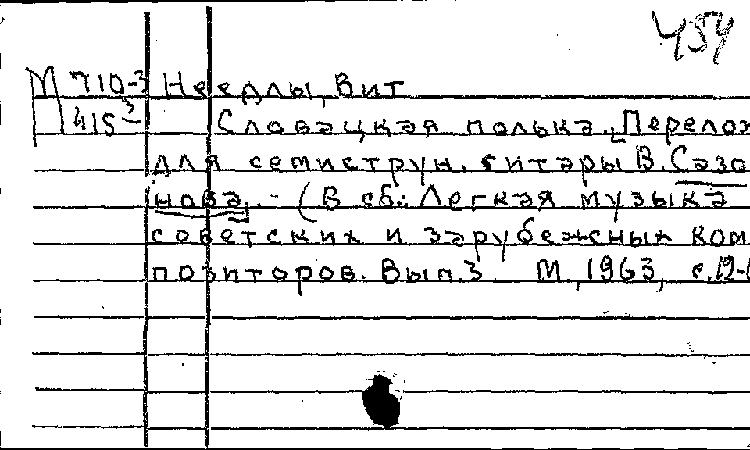 454
М 710-3 Неедлы, Вит
415 3 Словацкая полька. [Перелож
для семиструн. гитары В. Сазо
нова]. - (В сб.: Легкая музыка
советских и зарубежных ком
позиторов. Вып. 3 М., 1963, с. 12-1